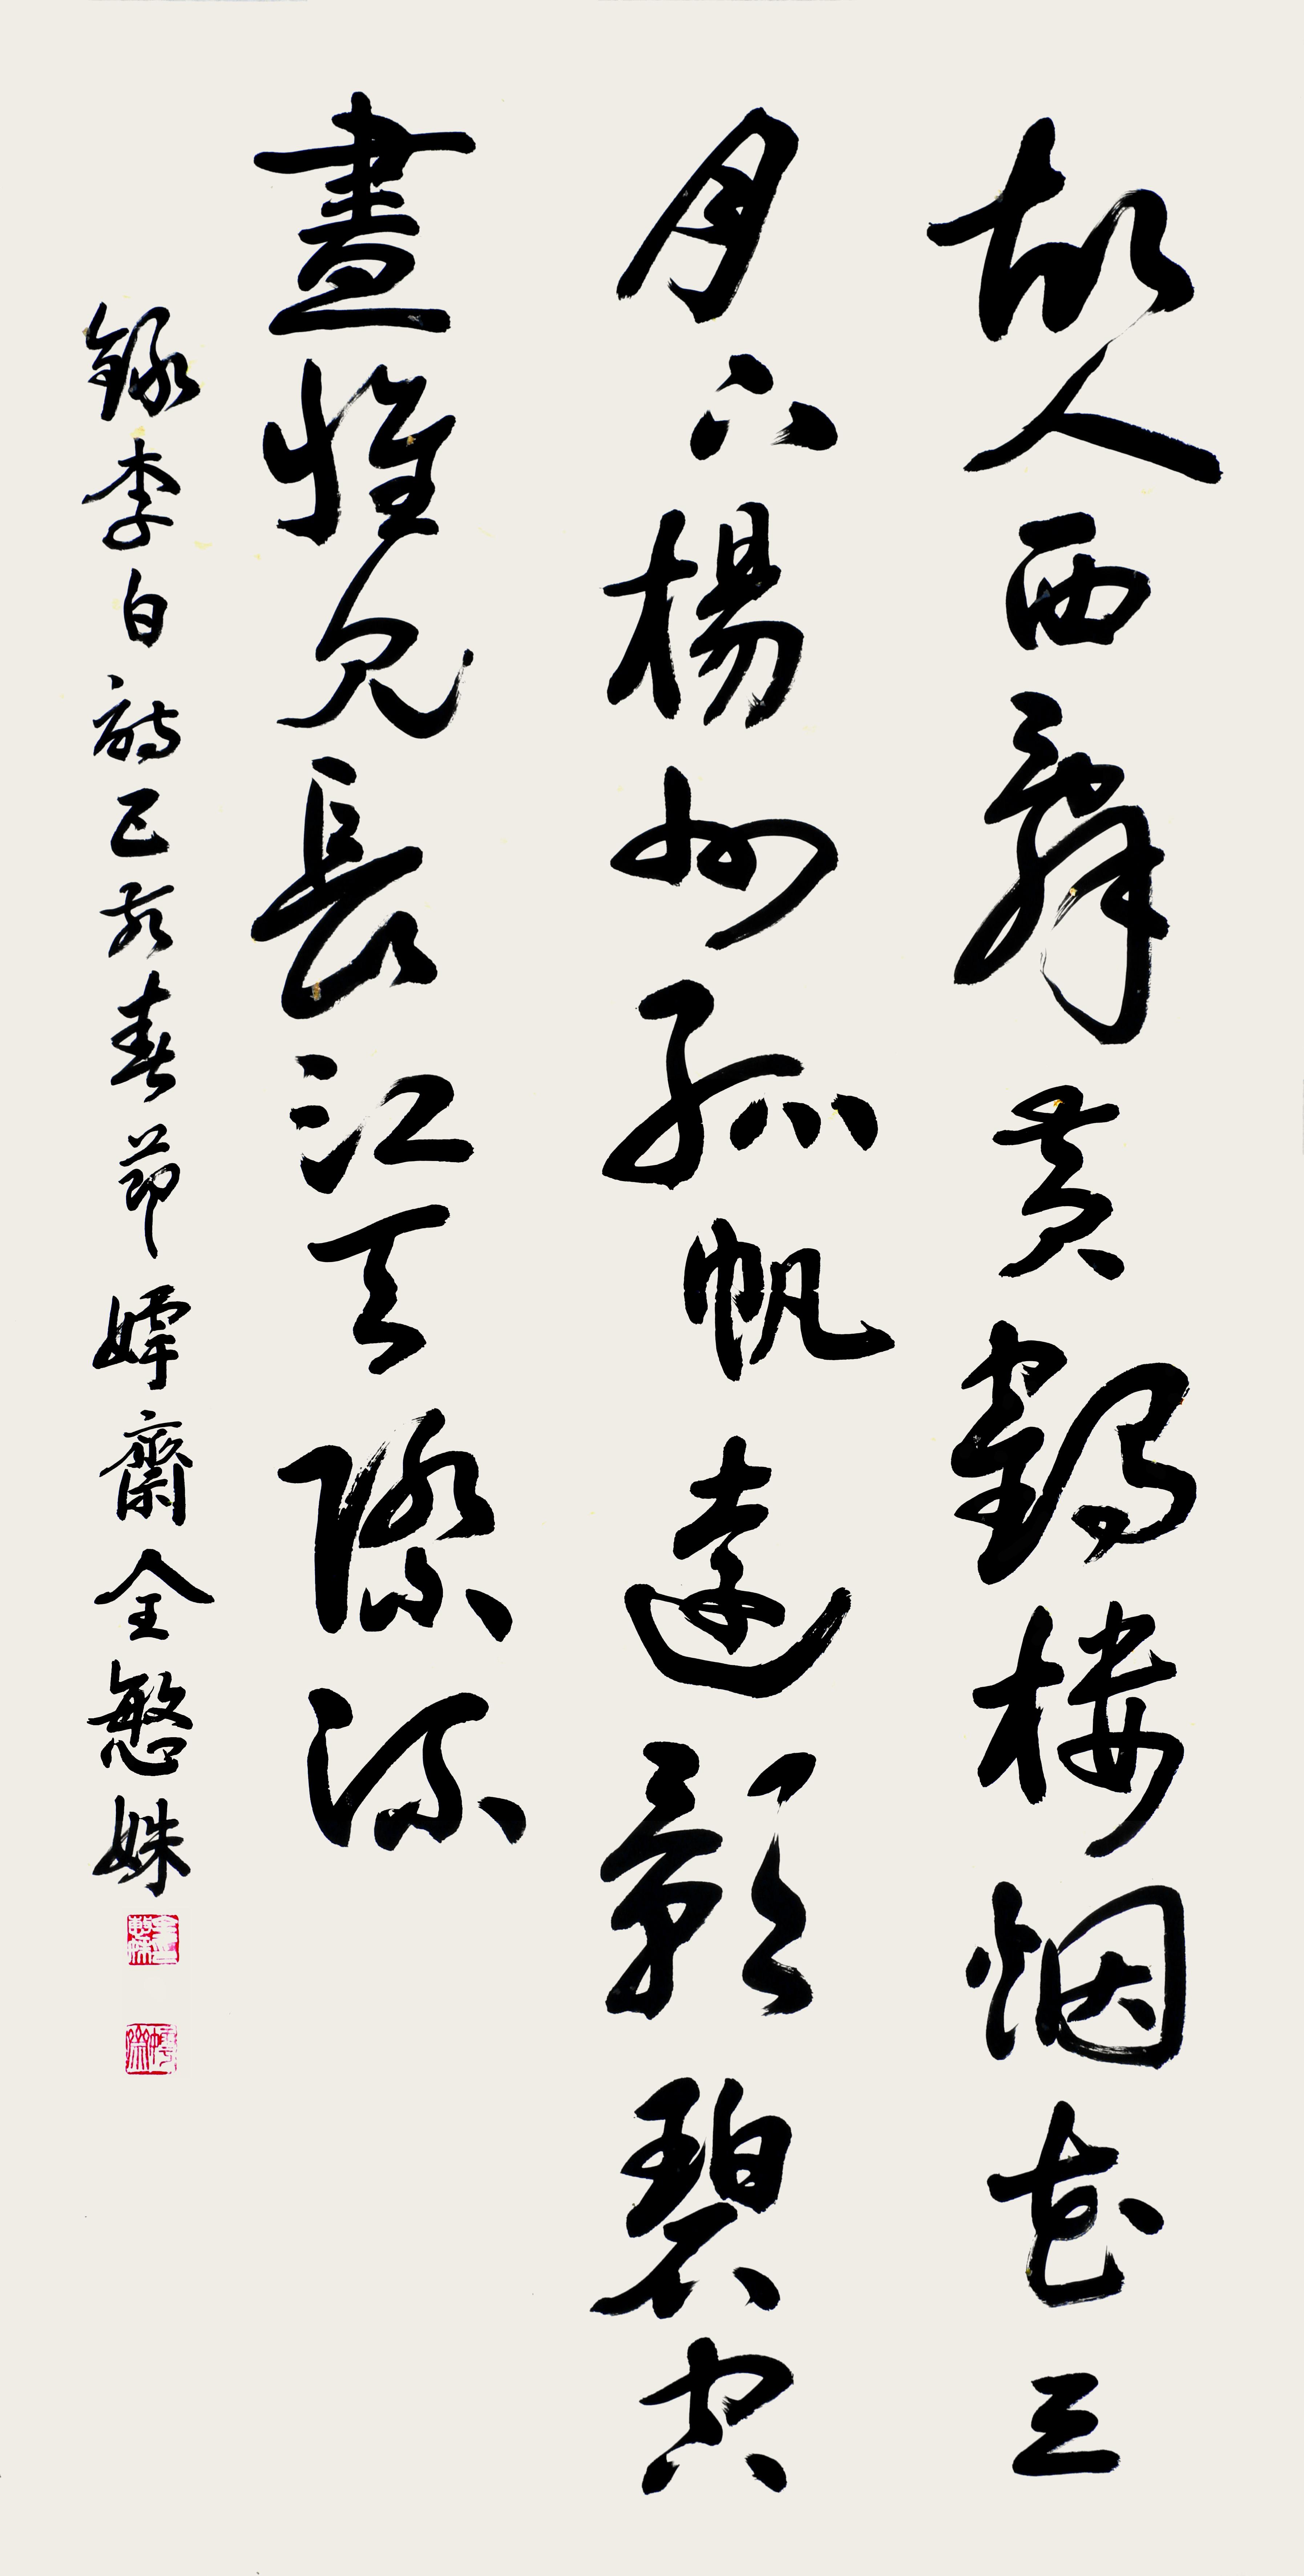 故人西辭黃鶴樓烟花三
月下楊州孤帆遠影碧空
盡惟見長江天際流
錄李白詩己亥春節嫮齋全慜姝